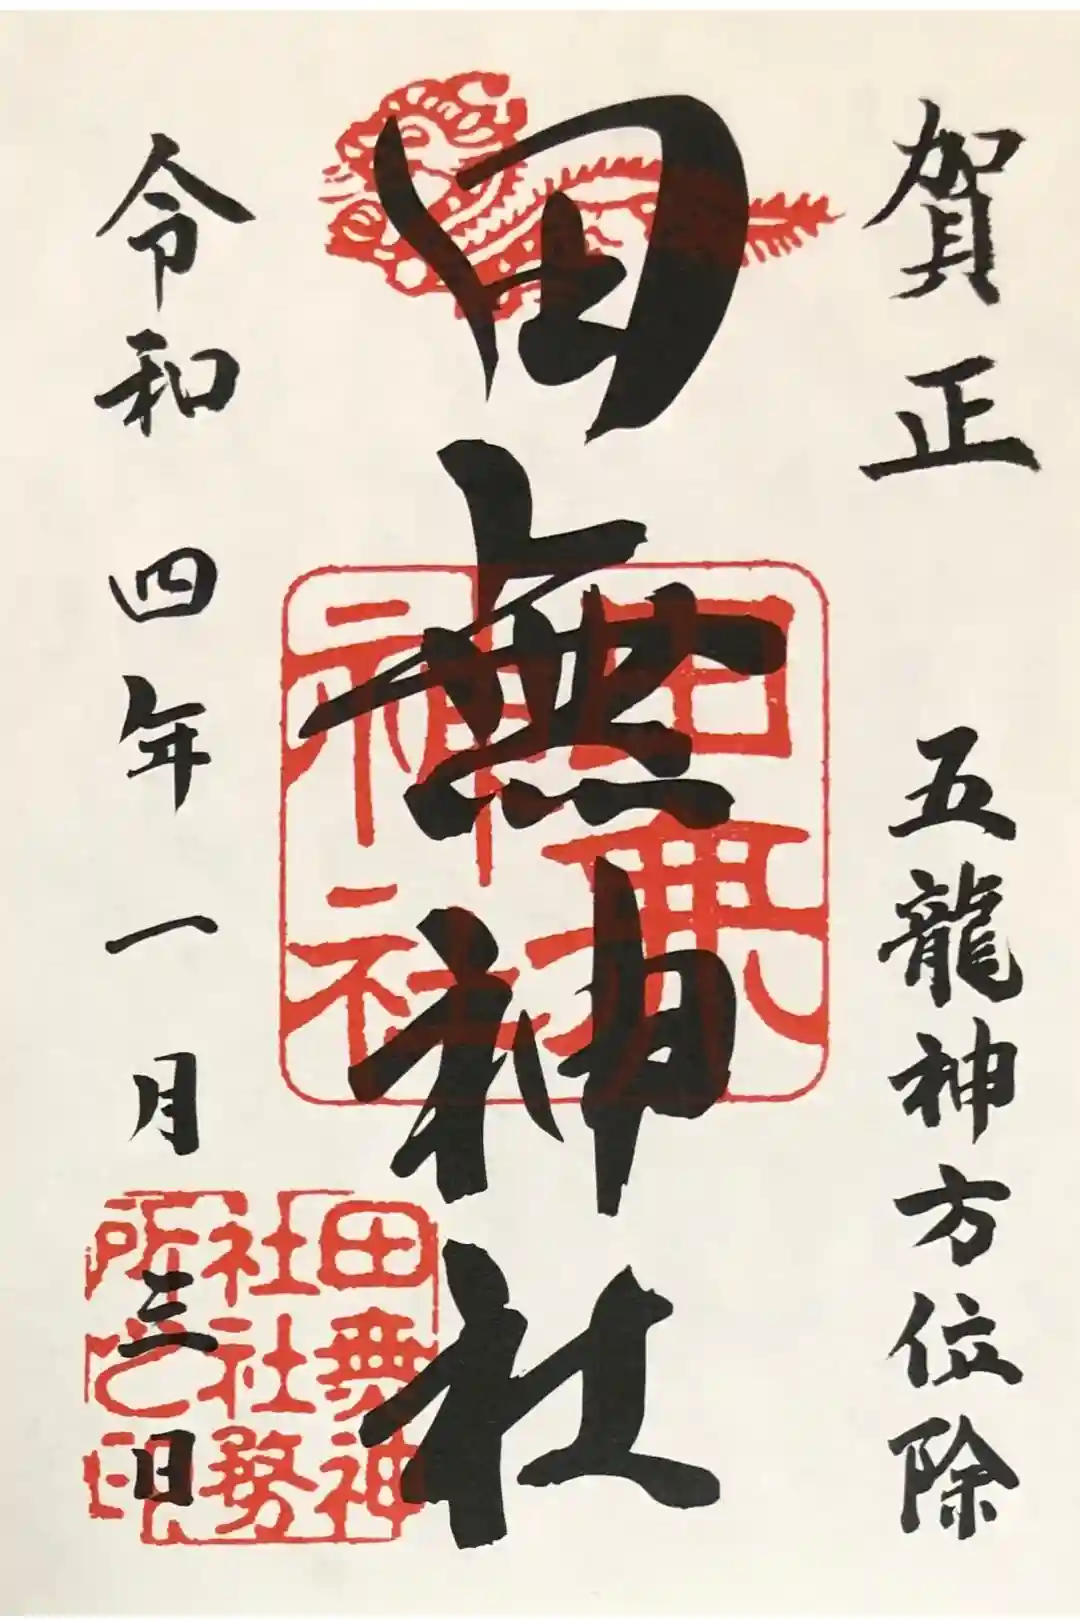 賀正
五龍神方位除
田無神社
田無神社
令和四年一月三日
田無神
社社務
所之印